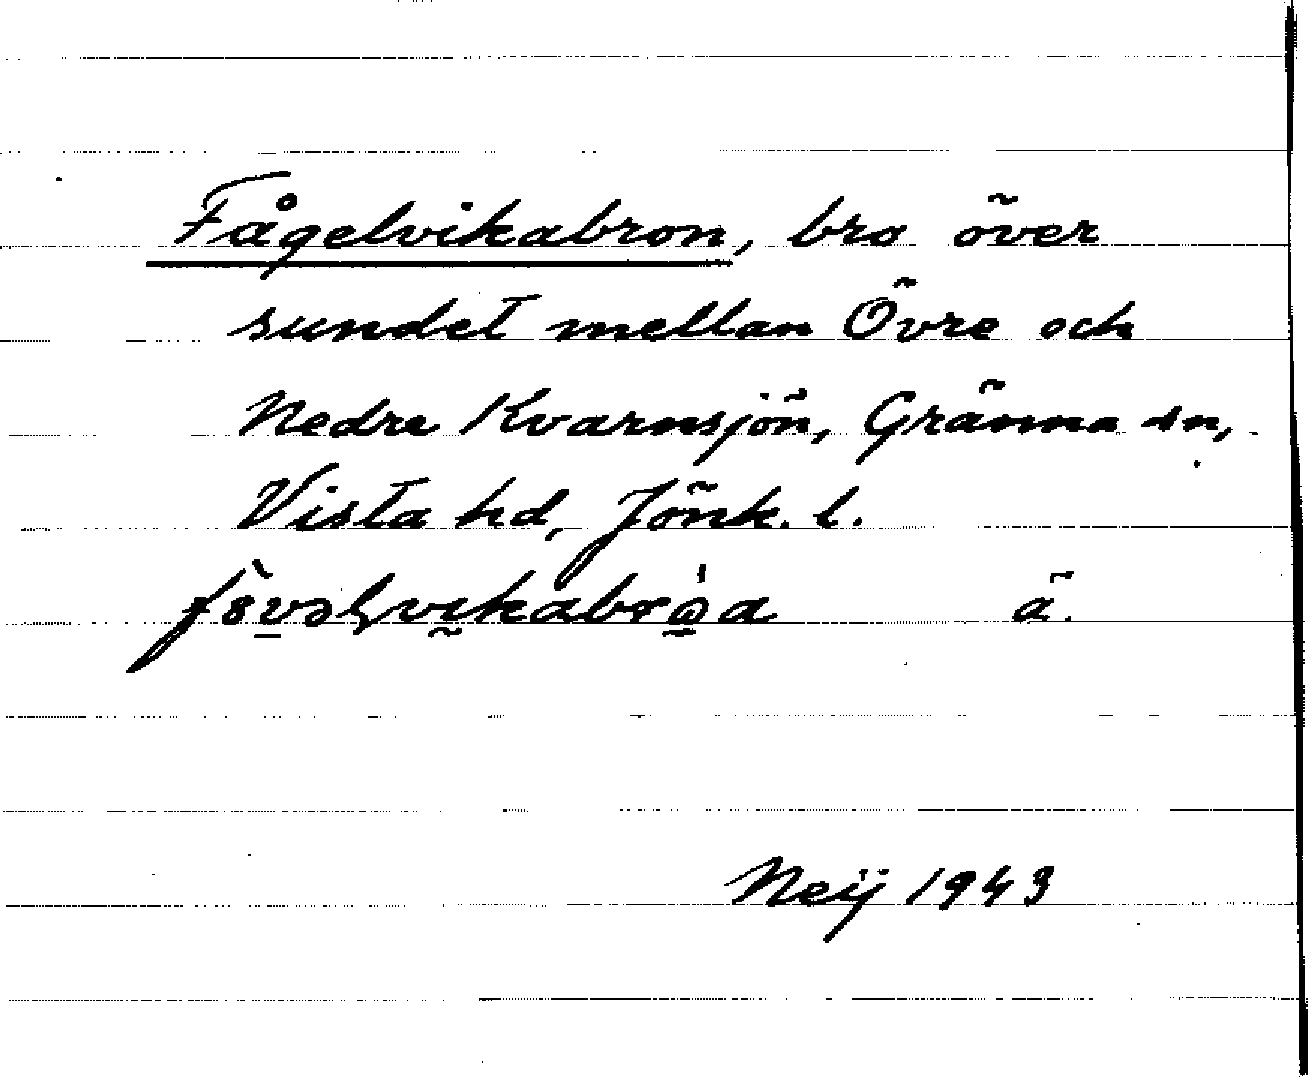 Fågelvikabron, bro över
sundet mellan Övre och
Nedre Kvarnsjön, Gränna sn,
Vista hd, Jönk. l.
ä.
Neij 1943